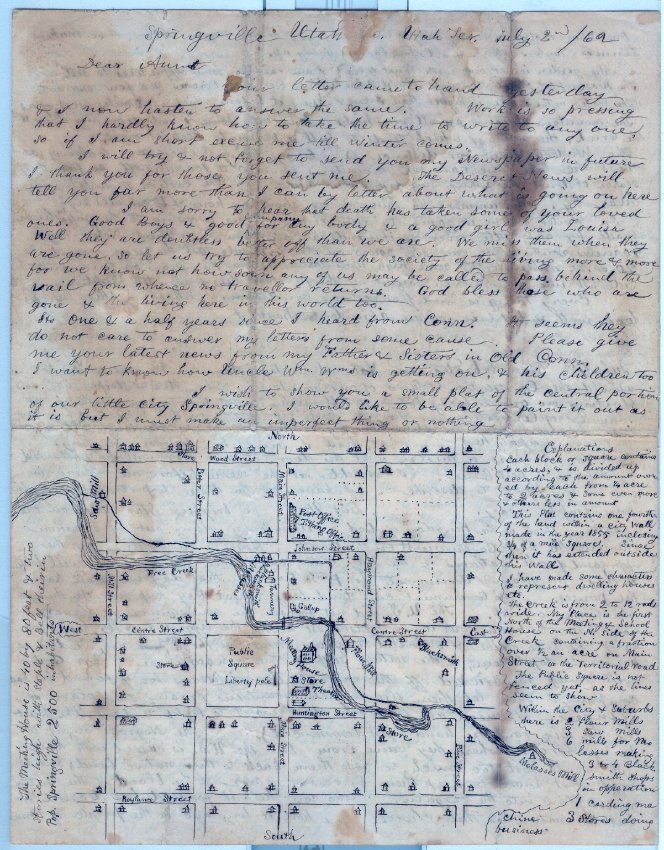 Springville Utah Co. Utah Ter. July 2nd /62
Dear Aunt
Your letter came to hand yesterday
& I now hasten to answer the same. Work is so pressing
that I hardly know how to take the time to write to any one,
so if I am short excuse me till winter comes.
I will try & not forget to send you my Newspaper in future
I thank you for those you sent me. The Deseret News will
tell you far more than I can by letter about what is going on here
I am sorry to hear that death has taken some of your loved
ones. Good Boys & good company & a good girl was Louisa
Well they are doubtless better off than we are. We miss them when they
are gone, so let us try to appreciate the society of the living more & more
for we know not how soon any of us may be called to pass behind the
vail from whence no travellor returns. God bless those who are
gone & the living here in this world too.
Its one & a half years since I heard from Conn. It seems they
do not care to answer my letters from some cause. Please give
me your latest news from my Father & Sisters in Old Conn.
I want to know how Uncle Wm. is getting on, & his children too
I wish to show you a small plat of the central portion
of our little City Springville. I would like to be able to paint it out as
it is but I must make an imperfect thing or nothing
North
Wood Street
Saw Mill
Main Street
Post Office
Tithing Office
Johnson Street
Hobble Creek
Tannery
West
Centre Street
Centre Street
East
Store
Public
Square
Liberty pole
Meeting
House
Store
Blacksmith
Huntington Street
Store
Molasses Mill
Street
South
The Meeting House is 40 by 80 feet & two
stories high with steeple & Bell therein
Pop. Springville 2500 inhabitants
Explanations
Each block or square contains
4 acres, & is divided up
according to the amount own
ed by each from ¼ acre
to 2 acres & some even more
& others less in amount
This Plat contains one fourth
of the land within a city wall
made in the year 1855 including
¾ of a mile square. Since
then it has extended outside
this Wall
I have made some characters
to represent dwelling houses
etc
The Creek is from 2 to 12 rods
wide. My Place is the first
North of the Meeting & School
House on the N. side of the
Creek containing a fraction
over ½ an acre on Main
Street or the Territorial road
The Public Square is not
fenced yet, as the lines
seem to show
Within the City & Suburbs
there is 2 Flour Mills
Saw Mills
6 mills for Mo
lasses making
3 to 4 Black
smith shops
in operation
1 carding ma
chine 3 Stores doing
business